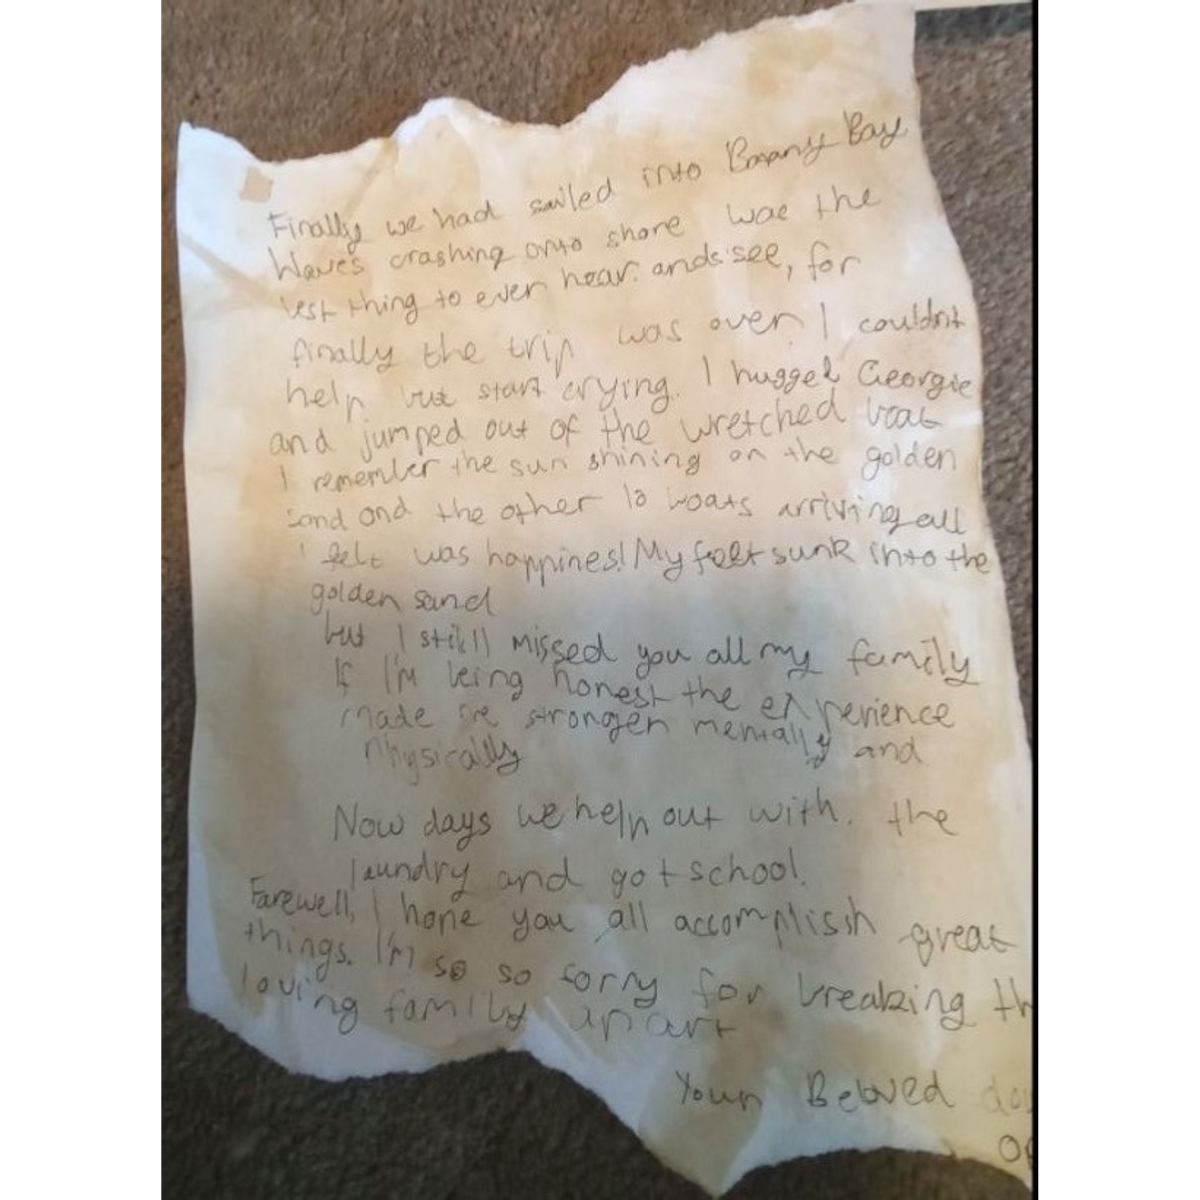 Finally we had sailed into Botany Bay
Waves crashing onto shore was the
best thing to ever hear and see, for
finally the trip was over. I couldn't
help but start crying. I hugged Georgie
and jumped out of the wretched boat
I remember the sun shining on the golden
sand and the other 10 boats arriving all
I felt was happines! My feet sunk into the
golden sand
but I still missed you all my family
If I'm being honest the experience
made me stronger mentally and
physically
Now days we help out with. the
laundry and go t school.
Farewell, I hope you all accomplish great
things. I'm so so sorry for breaking th
loving family apart
Your Beloved